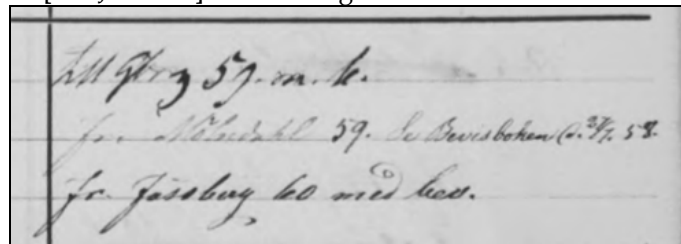 till Gbrg 59. m. b.
fr. Mölndahl 59. Se Bevisboken d. 27/7. 58.
fr. Fässberg 60 med bev.